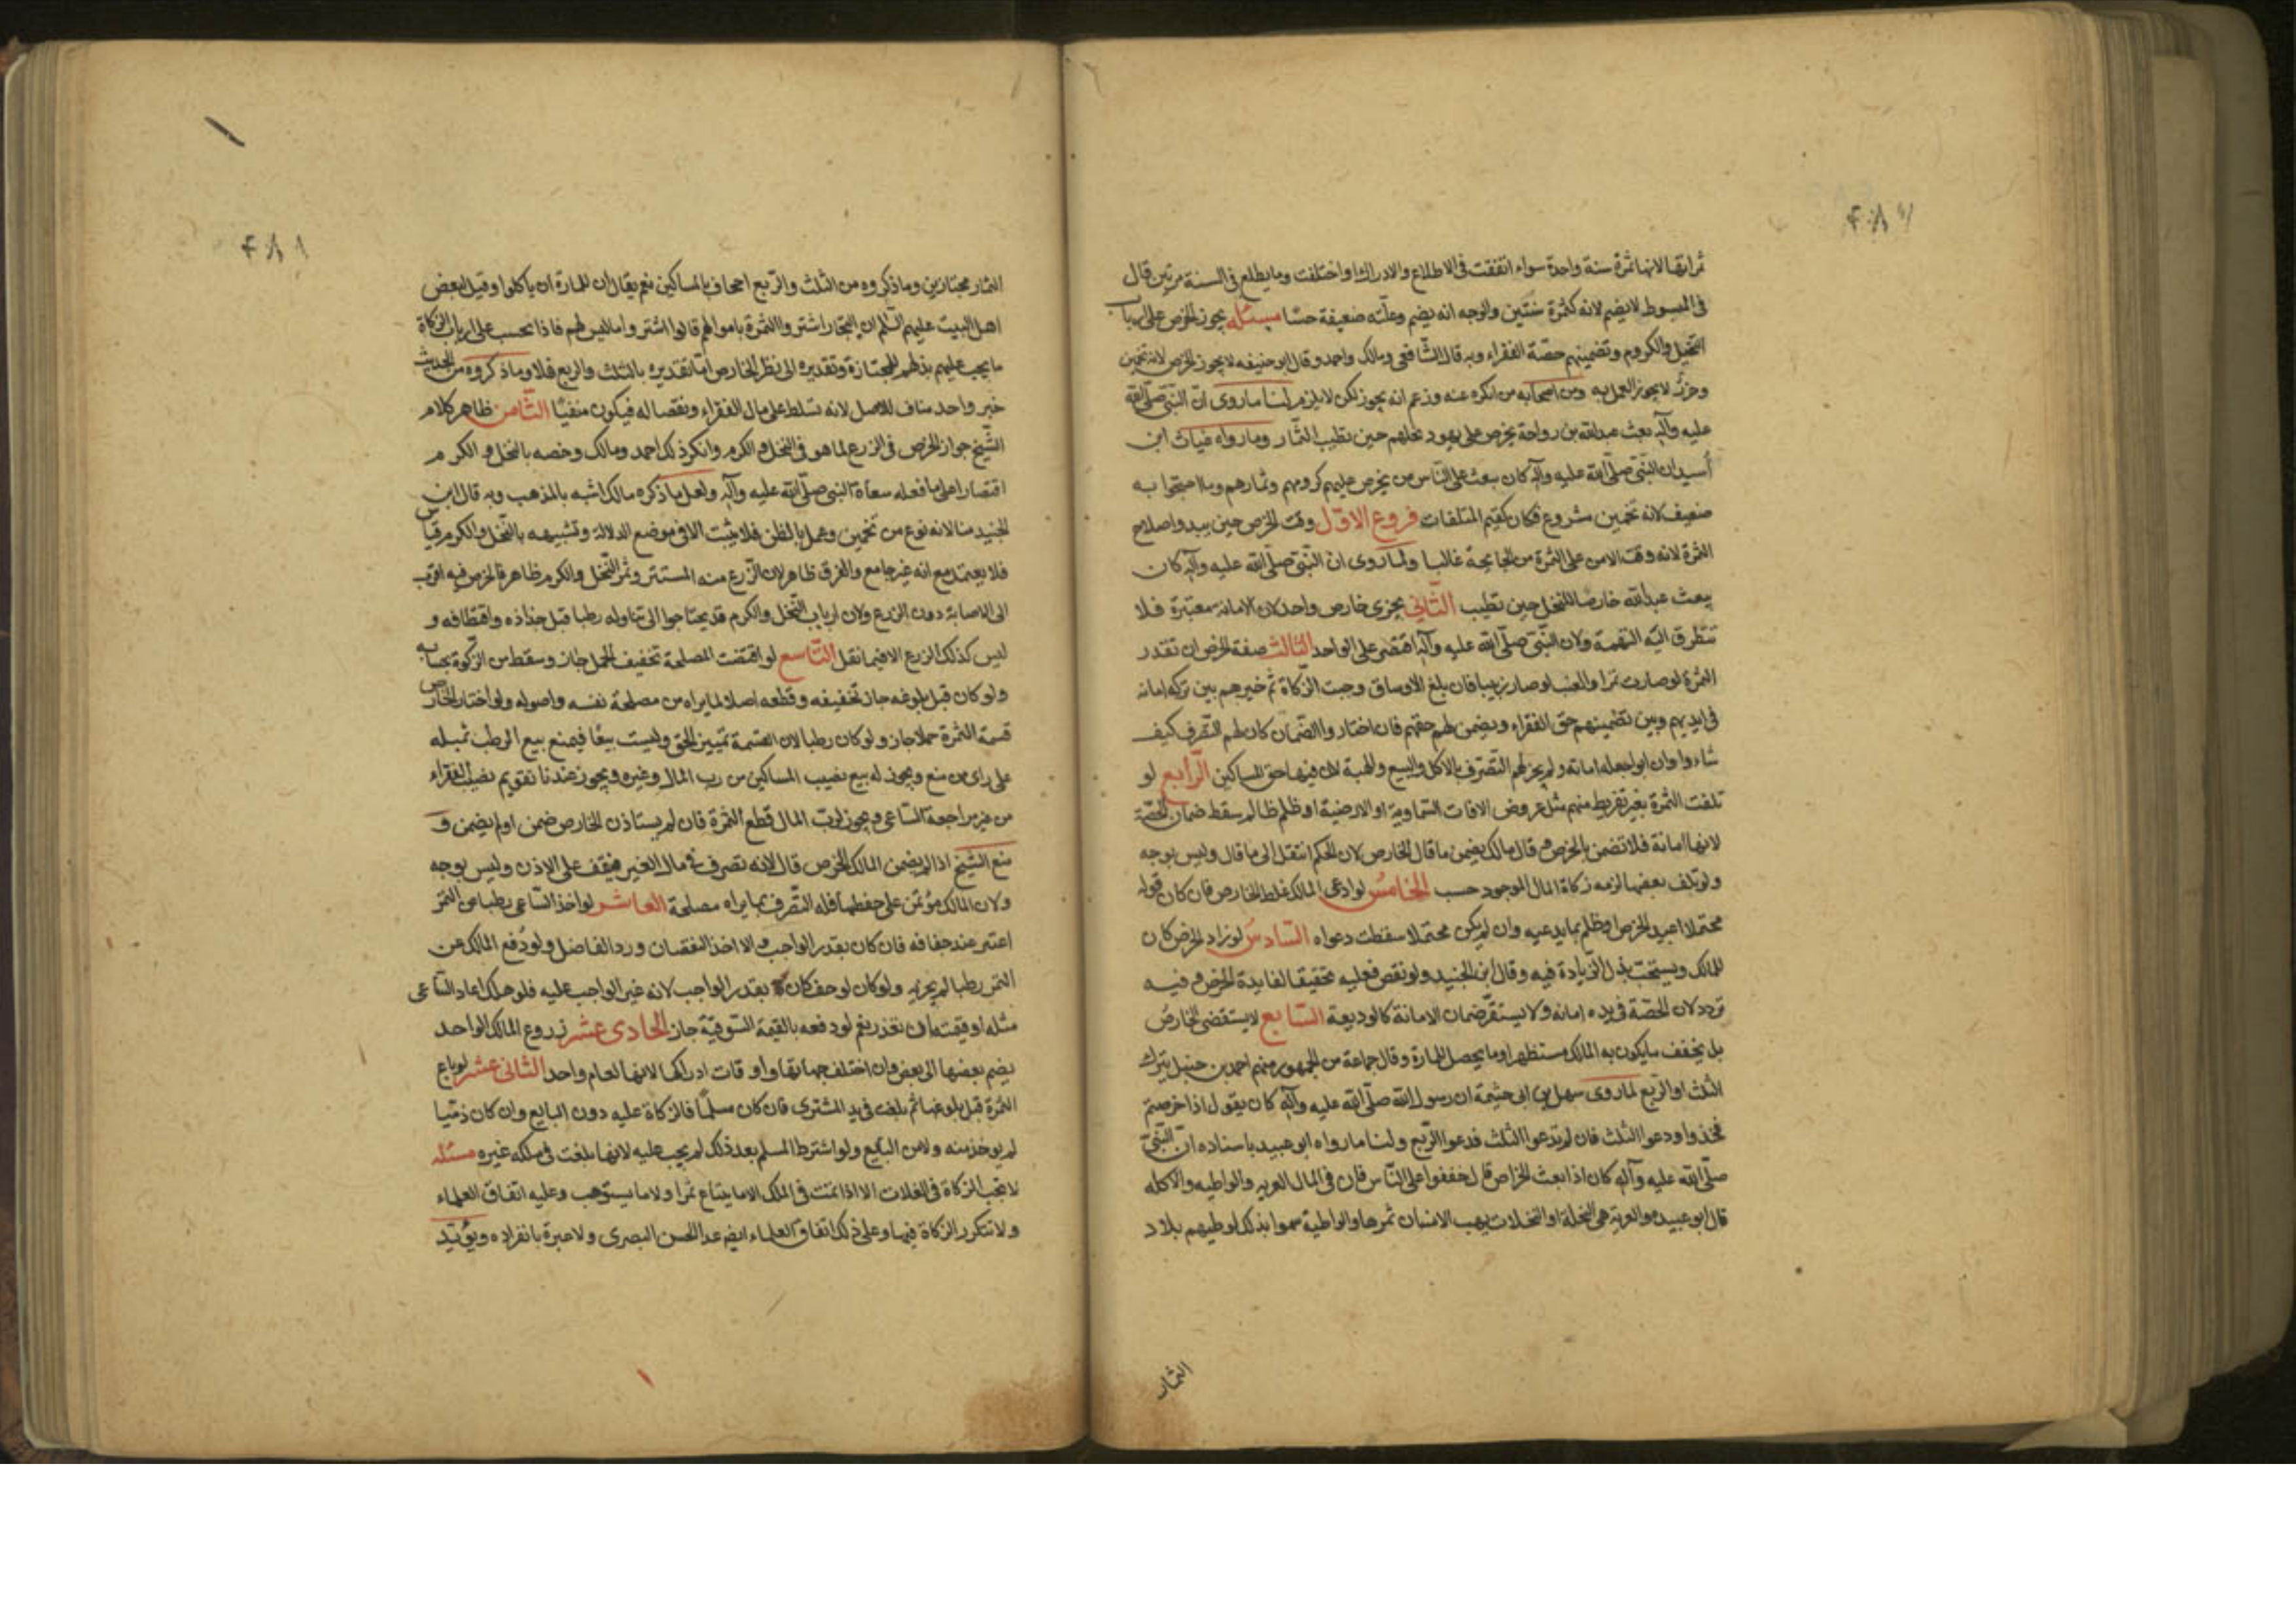 ثمراتها لانها ثمرة سنة واحدة سواء اتفقت فى الاطلاع والادراك او اختلفت وما يطلع فى السنة مرتين قال
فى المبسوط لا يضم لانه كثمرة سنتين والوجه انه يضم وعلته ضعيفة حسا مسئله يجوز الخرص على ارباب
النخيل والكروم وتضمينهم حصة الفقراء وبه قال الشافعى ومالك واحمد وقال ابو حنيفه لا يجوز الخرص لانه تخمين
وحزر لا يجوز العمل به ومن اصحابه من انكره عنه وزعم انه يجوز لكن لا يلزم لنا ما روى ان النبى صلى الله
عليه وآله بعث عبدالله بن رواحة يخرص على يهود نخلهم حين تطيب الثمار وما رواه غياث ابن
أسيد ان النبى صلى الله عليه وآله كان يبعث على الناس من يخرص عليهم كرومهم وثمارهم وما احتجوا به
ضعيف لانه تخمين مشروع فكان كقيم المتلفات فروع الاول وقت الخرص حين يبدو اصلاح
الثمرة لانه وقت الامن على الثمرة من الجايحة غالبا ولما روى ان النبى صلى الله عليه وآله كان
يبعث عبدالله خارصا للنخل حين تطيب الثانى يجزى خارص واحد لان الامانة معتبرة فلا
تتطرق اليه التهمة ولان النبى صلى الله عليه وآله اقتصر على الواحد الثالث صفة الخرص ان تقدر
الثمرة لو صارت تمرا والعنب لو صار زبيبا فان بلغ الاوساق وجبت الزكاة ثم خيرهم بين تركه امانة
فى ايديهم وبين تضمينهم حق الفقراء ويضمن لهم حقهم فان اختاروا الضمان كان لهم التصرف كيف
شاءوا وان ابوا جعله امانة ولم يجز لهم التصرف بالاكل والبيع والهبة لان فيها حق المساكين الرابع لو
تلفت الثمرة بغير تفريط منهم مثل عروض الافات السماوية او الارضية او ظلم ظالم سقط ضمان الحصة
لانها امانة فلا تضمن بالخرص وقال مالك يضمن ما قال الخارص لان الحكم انتقل الى ما قال وليس بوجه
ولو تلف بعضها لزمه زكاة المال الموجود حسب الخامس لو ادعى المالك غلط الخارص فان كان قوله
محتملا اعيد الخرص او ظلم بما يدعيه وان لم يكن محتملا سقطت دعواه السادس لو زاد الخرص كان
للمالك ويستحب بذل الزيادة فيه وقال ابن الجنيد ولو نقص فعليه تحقيقا لفايدة الخرص وفيه
تردد لان الحصة فى يده امانة ولا يستقر ضمان الامانة كالوديعة السابع لا يستقضى الخارص
بل يخفف ما يكون به المالك مستظهرا وما يحصل للمارة وقال جماعة من الجمهور منهم احمد بن حنبل يترك
الثلث او الربع لما روى سهل بن ابى حثيمة ان رسول الله صلى الله عليه وآله كان يقول اذا خرصتم
فخذوا ودعوا الثلث فان لم تدعوا الثلث فدعوا الربع ولنا ما رواه ابو عبيد باسناده ان النبى
صلى الله عليه وآله كان اذا بعث الخراص قال خففوا على الناس فان فى المال العريه والواطيه والاكله
قال ابو عبيد والعرية هى النخلة او النخلات يهب الانسان ثمرها والواطية سموا بذلك لوطيهم بلاد
الثمار
الثمار مجتازين وما ذكروه من الثلث والربع اجحاف بالمساكين نعم يقال ان للمارة ان ياكلوا وقيل لبعض
اهل البيت عليهم السلم ان التجار اشتروا الثمرة باموالهم قال اشتروا ما ليس لهم فاذا نحسب على ارباب الزكاة
ما يجب عليهم بذلهم للمجتازة وتقديره الى نظر الخارص اما تقديره بالثلث والربع فلا وما ذكروه من الحديث
خبر واحد مناف للاصل لانه تسلط على مال الفقراء ونقصا له فيكون منفيا الثامن ظاهر كلام
الشيخ جواز الخرص فى الزرع لما هو فى النخل والكرم وانكر ذلك احمد ومالك وخصه بالنخل والكرم
اقتصارا على ما فعله سعاة النبى صلى الله عليه وآله ولعل ما ذكره مالك اشبه بالمذهب وبه قال ابن
الجنيد منا لانه نوع من تخمين وعمل بالظن فلا يثبت الا فى موضع الدلالة وتشبيهه بالنخل والكرم قياس
فلا يعتمد مع انه غير جامع والفرق ظاهر لان الزرع منه المستتر وثمر النخل والكرم ظاهر فالخرص فيه اقرب
الى الاصابة دون الزرع ولان ارباب النخل والكرم قد يحتاجوا الى تناوله رطبا قبل جذاذه واقتطافه و
ليس كذلك الزرع الا فيما نقل التاسع لو اقتضت المصلحة تخفيف الحمل جاز وسقط من الزكوة بحسابه
ولو كان قبل بلوغه جاز تخفيفه وقطعه اصلا لما يراه من مصلحة نفسه واصوله ولو اختار الخارص
قسمة الثمرة حملا جاز ولو كان رطبا لان القسمة تمييز الحق وليست بيعا فيمنع بيع الرطب بمثله
على راى من منع ويجوز له بيع نصيب المساكين من رب المال وغيره ويجوز عندنا تقويم نصيب الفقراء
من غير مراجعة الساعى ويجوز لرب المال قطع الثمرة فان لم يستاذن الخارص ضمن او لم يضمن و
منع الشيخ اذا لم يضمن المالك الخرص قال لانه تصرف فى مال الغير فيقف على الاذن وليس بوجه
ولان المالك مؤتمن على حفظها فله التصرف بما يراه مصلحة العاشر لو اخذ الساعى رطبا من التمر
اعتبر عند جفافه فان كان بقدر الواجب والا اخذ النقصان ورد الفاضل ولو دفع المالك عن
التمر رطبا لم يجزيه ولو كان لو جف كان بقدر الواجب لانه غير الواجب عليه فلو هلك اعاد الساعى
مثله او قيمته ان تعذر نعم لو دفعه بالقيمة السوقية جاز الحادى عشر زروع المالك الواحد
يضم بعضها الى بعض وان اختلف جهاتها واوقات ادراكها لانها لعام واحد الثانى عشر لو باع
الثمرة قبل بلوغها ثم بلغت فى يد المشترى فان كان مسلما فالزكاة عليه دون البايع وان كان ذميا
لم يوخذ منه ولا من البايع ولو اشترط المسلم بعد ذلك لم يجب عليه لانها بلغت فى ملكه غيره مسئله
لا تجب الزكاة فى الغلات الا اذا نمت فى الملك لا ما يبتاع ثمرا ولا ما يستوهب وعليه اتفاق العلماء
ولا تتكرر الزكاة فيها وعلى ذلك اتفاق العلماء ايضم عدا الحسن البصرى ولا عبرة بانفراده ويؤيد